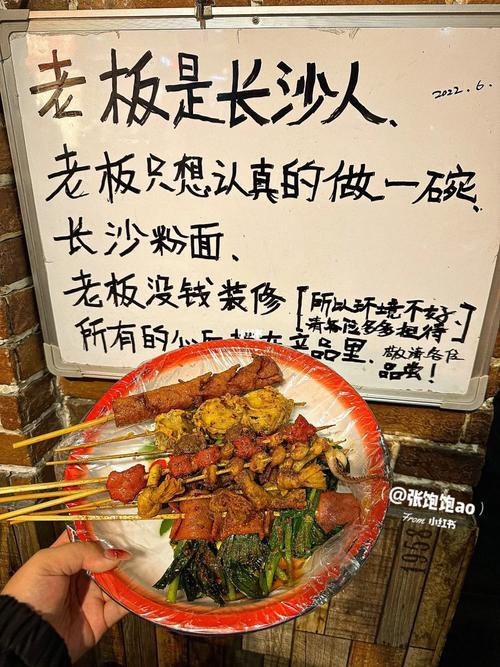 老板是长沙人、
2022.6.
老板只想认真的做一碗、
长沙粉面、
老板没钱装修
[所以环境不好、
请您多多担待]
所有的 产品里、
敬请各位
品尝!
@张饱饱ao
From 小红书